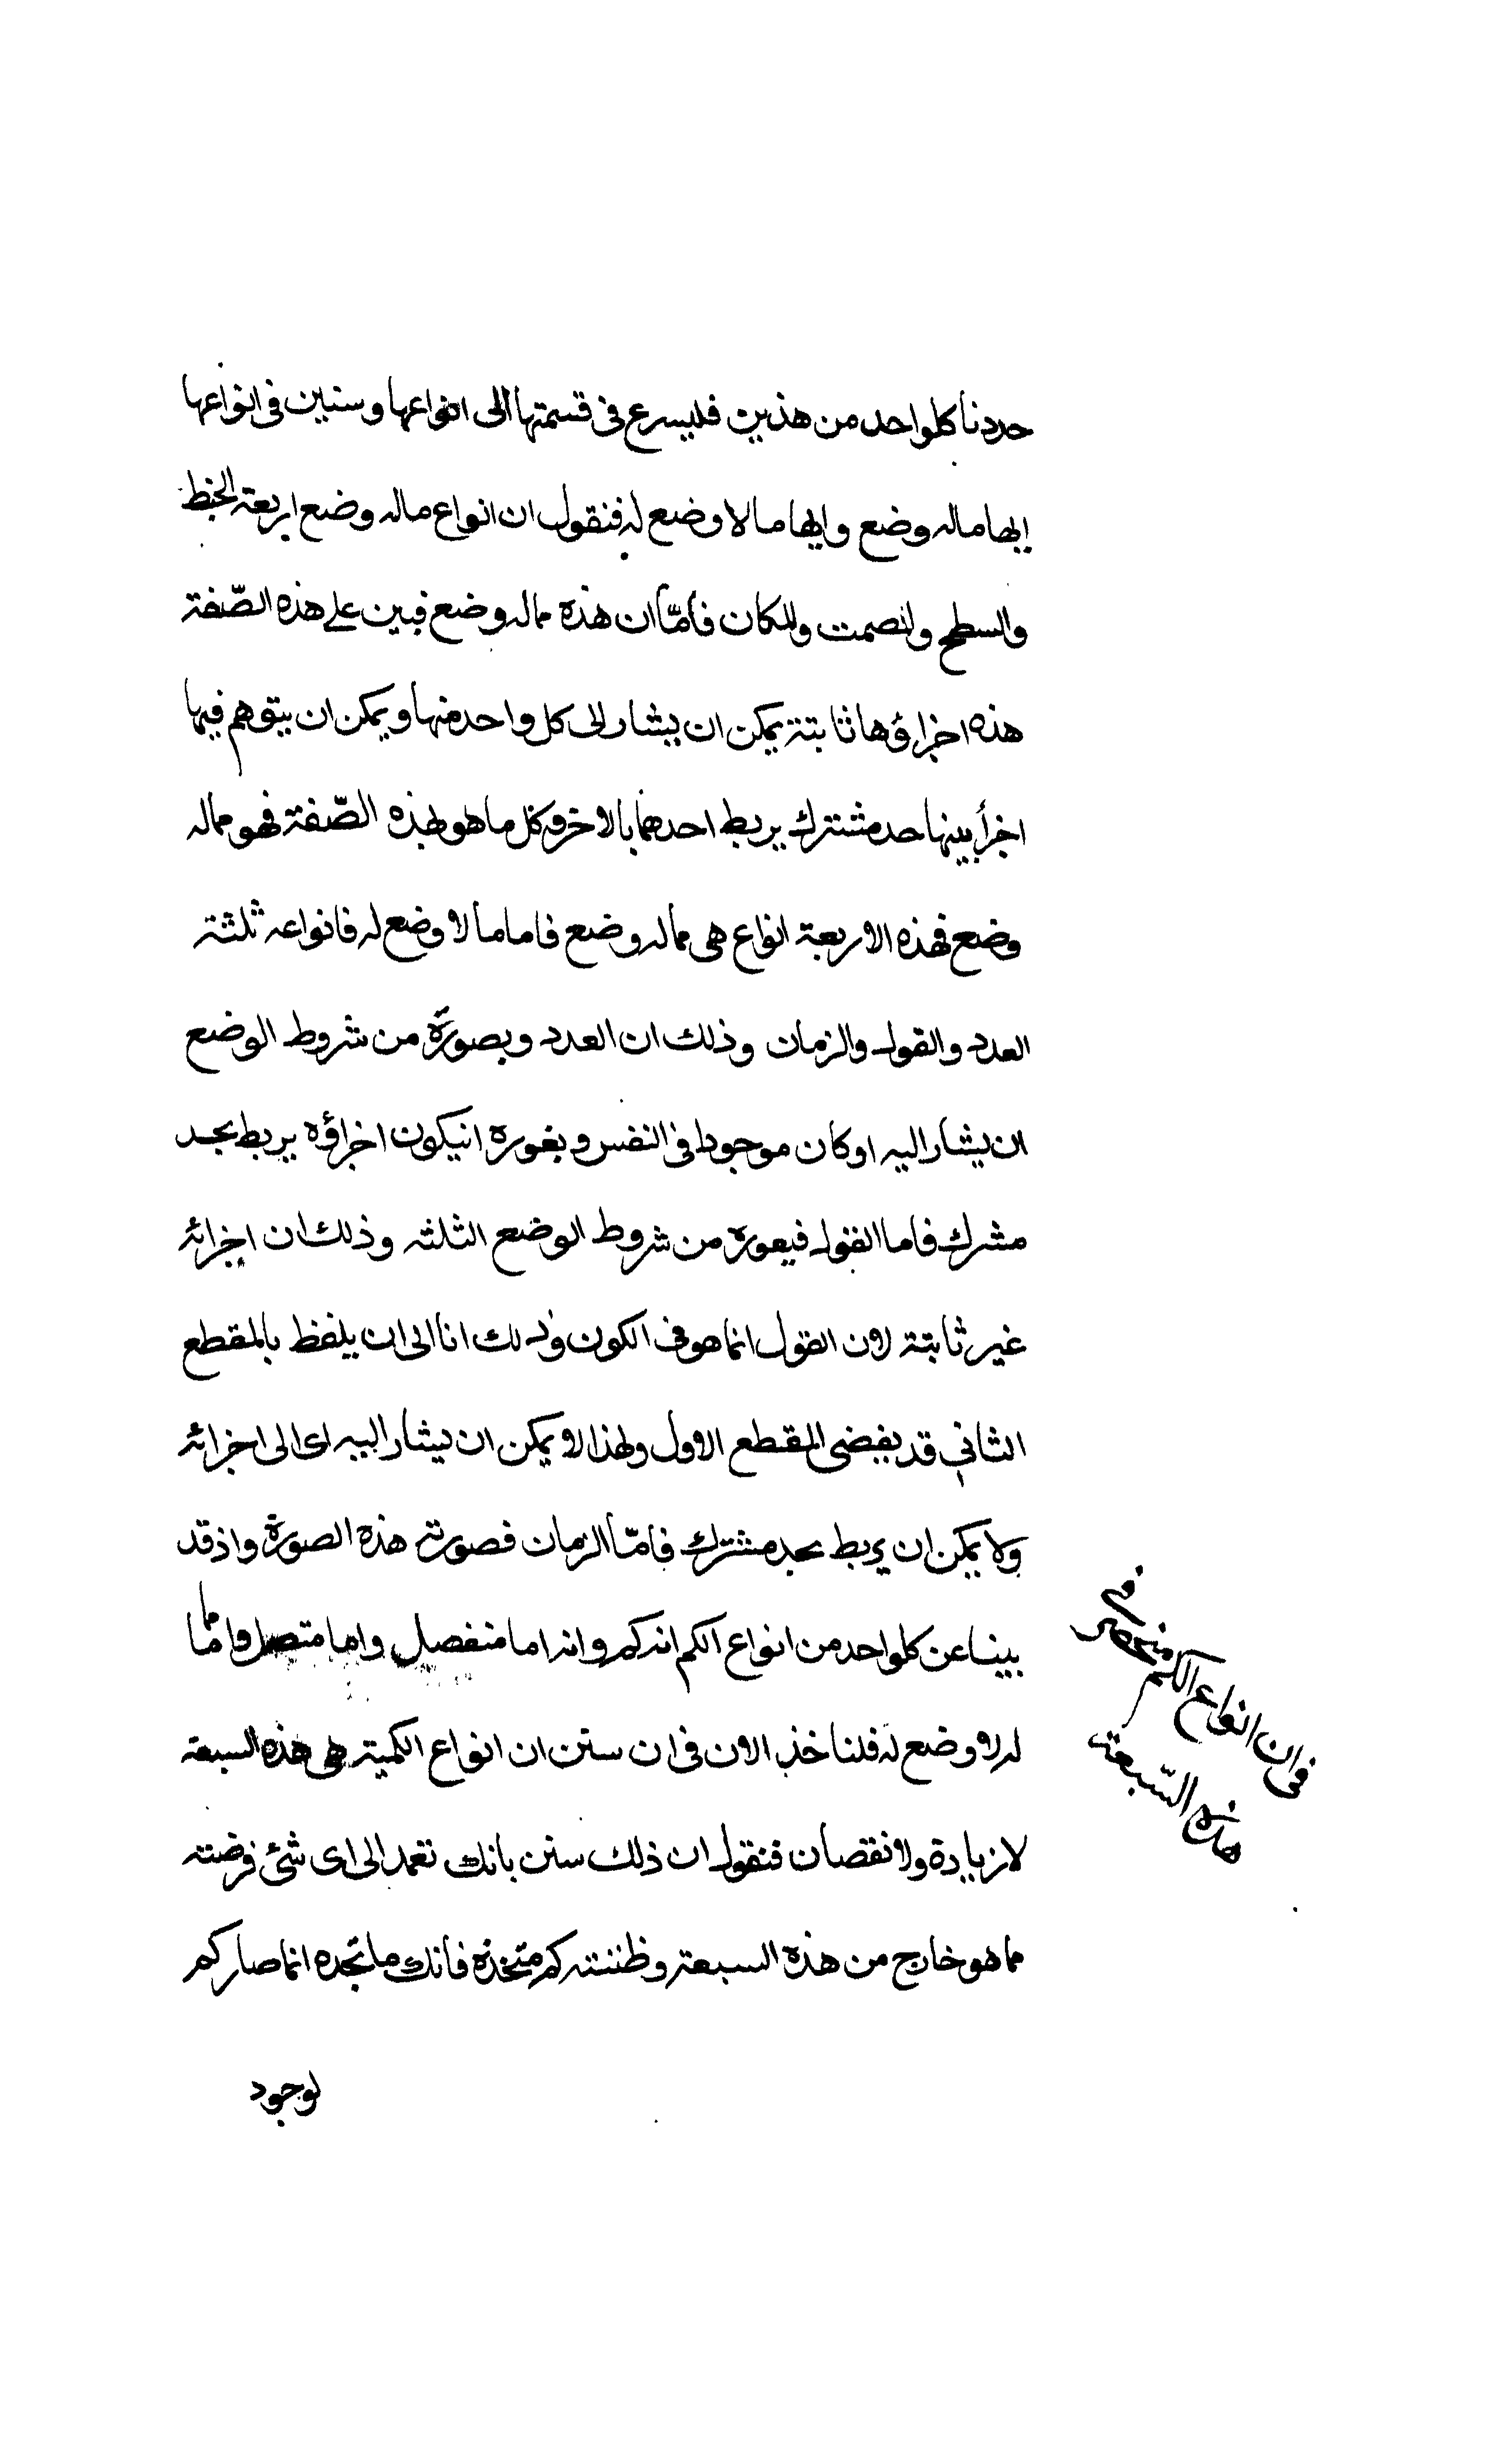 حددنا كلواحد من هذين فليسرع فى قسمتها الى انواعها وسنبين فى انواعها
ايها ماله وضع وايها ما لا وضع له فنقول ان انواع ماله وضع اربعة الخط
والسطح والمصمت والمكان فأمّا ان هذه مما له وضع فبين على هذه الصّفة
هذه اخزاؤها ثابتة يمكن ان يشار الى كل واحد منها ويمكن ان يتوهم فيها
اخزأ بينها حد مشترك يربط احدهما بالاخر وكل ما هو بهذه الصّفة فهو مما له
وضع فهذه الاربعة انواع هى مما له وضع فاما ما لا وضع له فانواعه ثلثة
العدد والقول والزمان وذلك ان العدد وبصورة من شروط الوضع
ان يشار اليه اوكان موجودا فى النفس وبغوره انيكون اخزاؤه يربط بحد
مشرك فاما القول فيعوره من شروط الوضع الثلثة وذلك ان اجزائه
غير ثابتة لان القول انما هو فى الكون وذلك انا الى ان يلفظ بالمقطع
الثانى قد يفضى المقطع الاول ولهذا لا يمكن ان يشار اليه اى الى اخزائه
ولا يمكن ان يربط بحد مشترك فامّا الزمان فصورته هذه الصورة واذ قد
بينا عن كلواحد من انواع الكم انه كم وانه اما منفصل واما متصل واما مما
له لا وضع له فلنأخذ الان فى ان سنن ان انواع الكمية هى هذه السبعة
لا زيادة ولا نقصان فنقول ان ذلك سنن بانك تعمد الى اى شئ فرضته
مما هو خارج من هذه السبعة وظننته كم متخذه فأنك ما تجده انما صار كم
لوجود
فى ان انواع الكم منحصر فى
هذه السّبعة